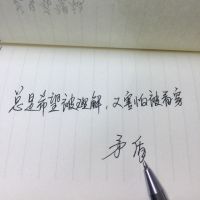 总是希望被理解，又害怕被看穿
矛盾